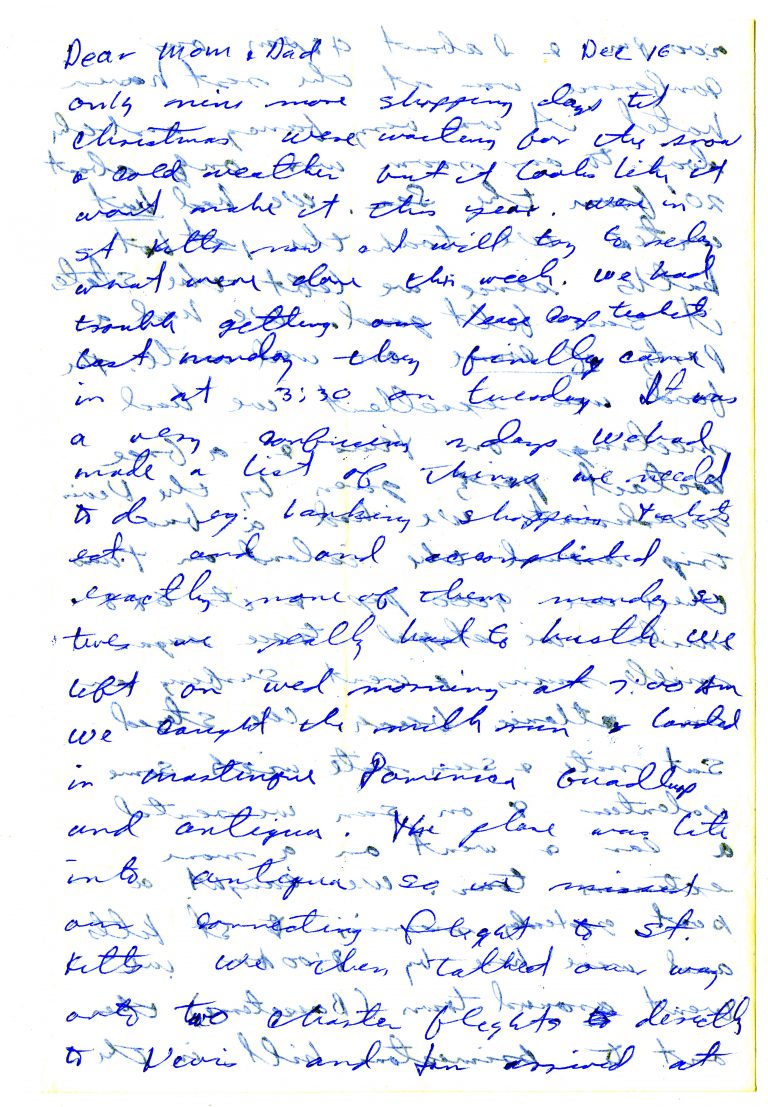 Dear Mom & Dad Dec 16
only nine more shopping days til
Christmas were waiting for the snow
& cold weather but it looks like it
wont make it this year. were in
St Kitts now & I will try to relay
what weve done this week. we had
trouble getting our tickets
last monday they finally came
in at 3:30 on tuesday. It was
a very confusing 2 days we had
made a list of things we needed
to do eg. banking shopping tickets
ect. and and accomplished
exactly none of them monday so
tues we really had to hustle we
left on wed morning at 7:00 AM
we caught the milk run & landed
in mastinque Dominica Guadlup
and antigua. The plane was late
into antigua so we missed
our connecting flight to St.
Kitts. we then talked our way
onto two charter flights to directly
to Nevis and Jon arrived at